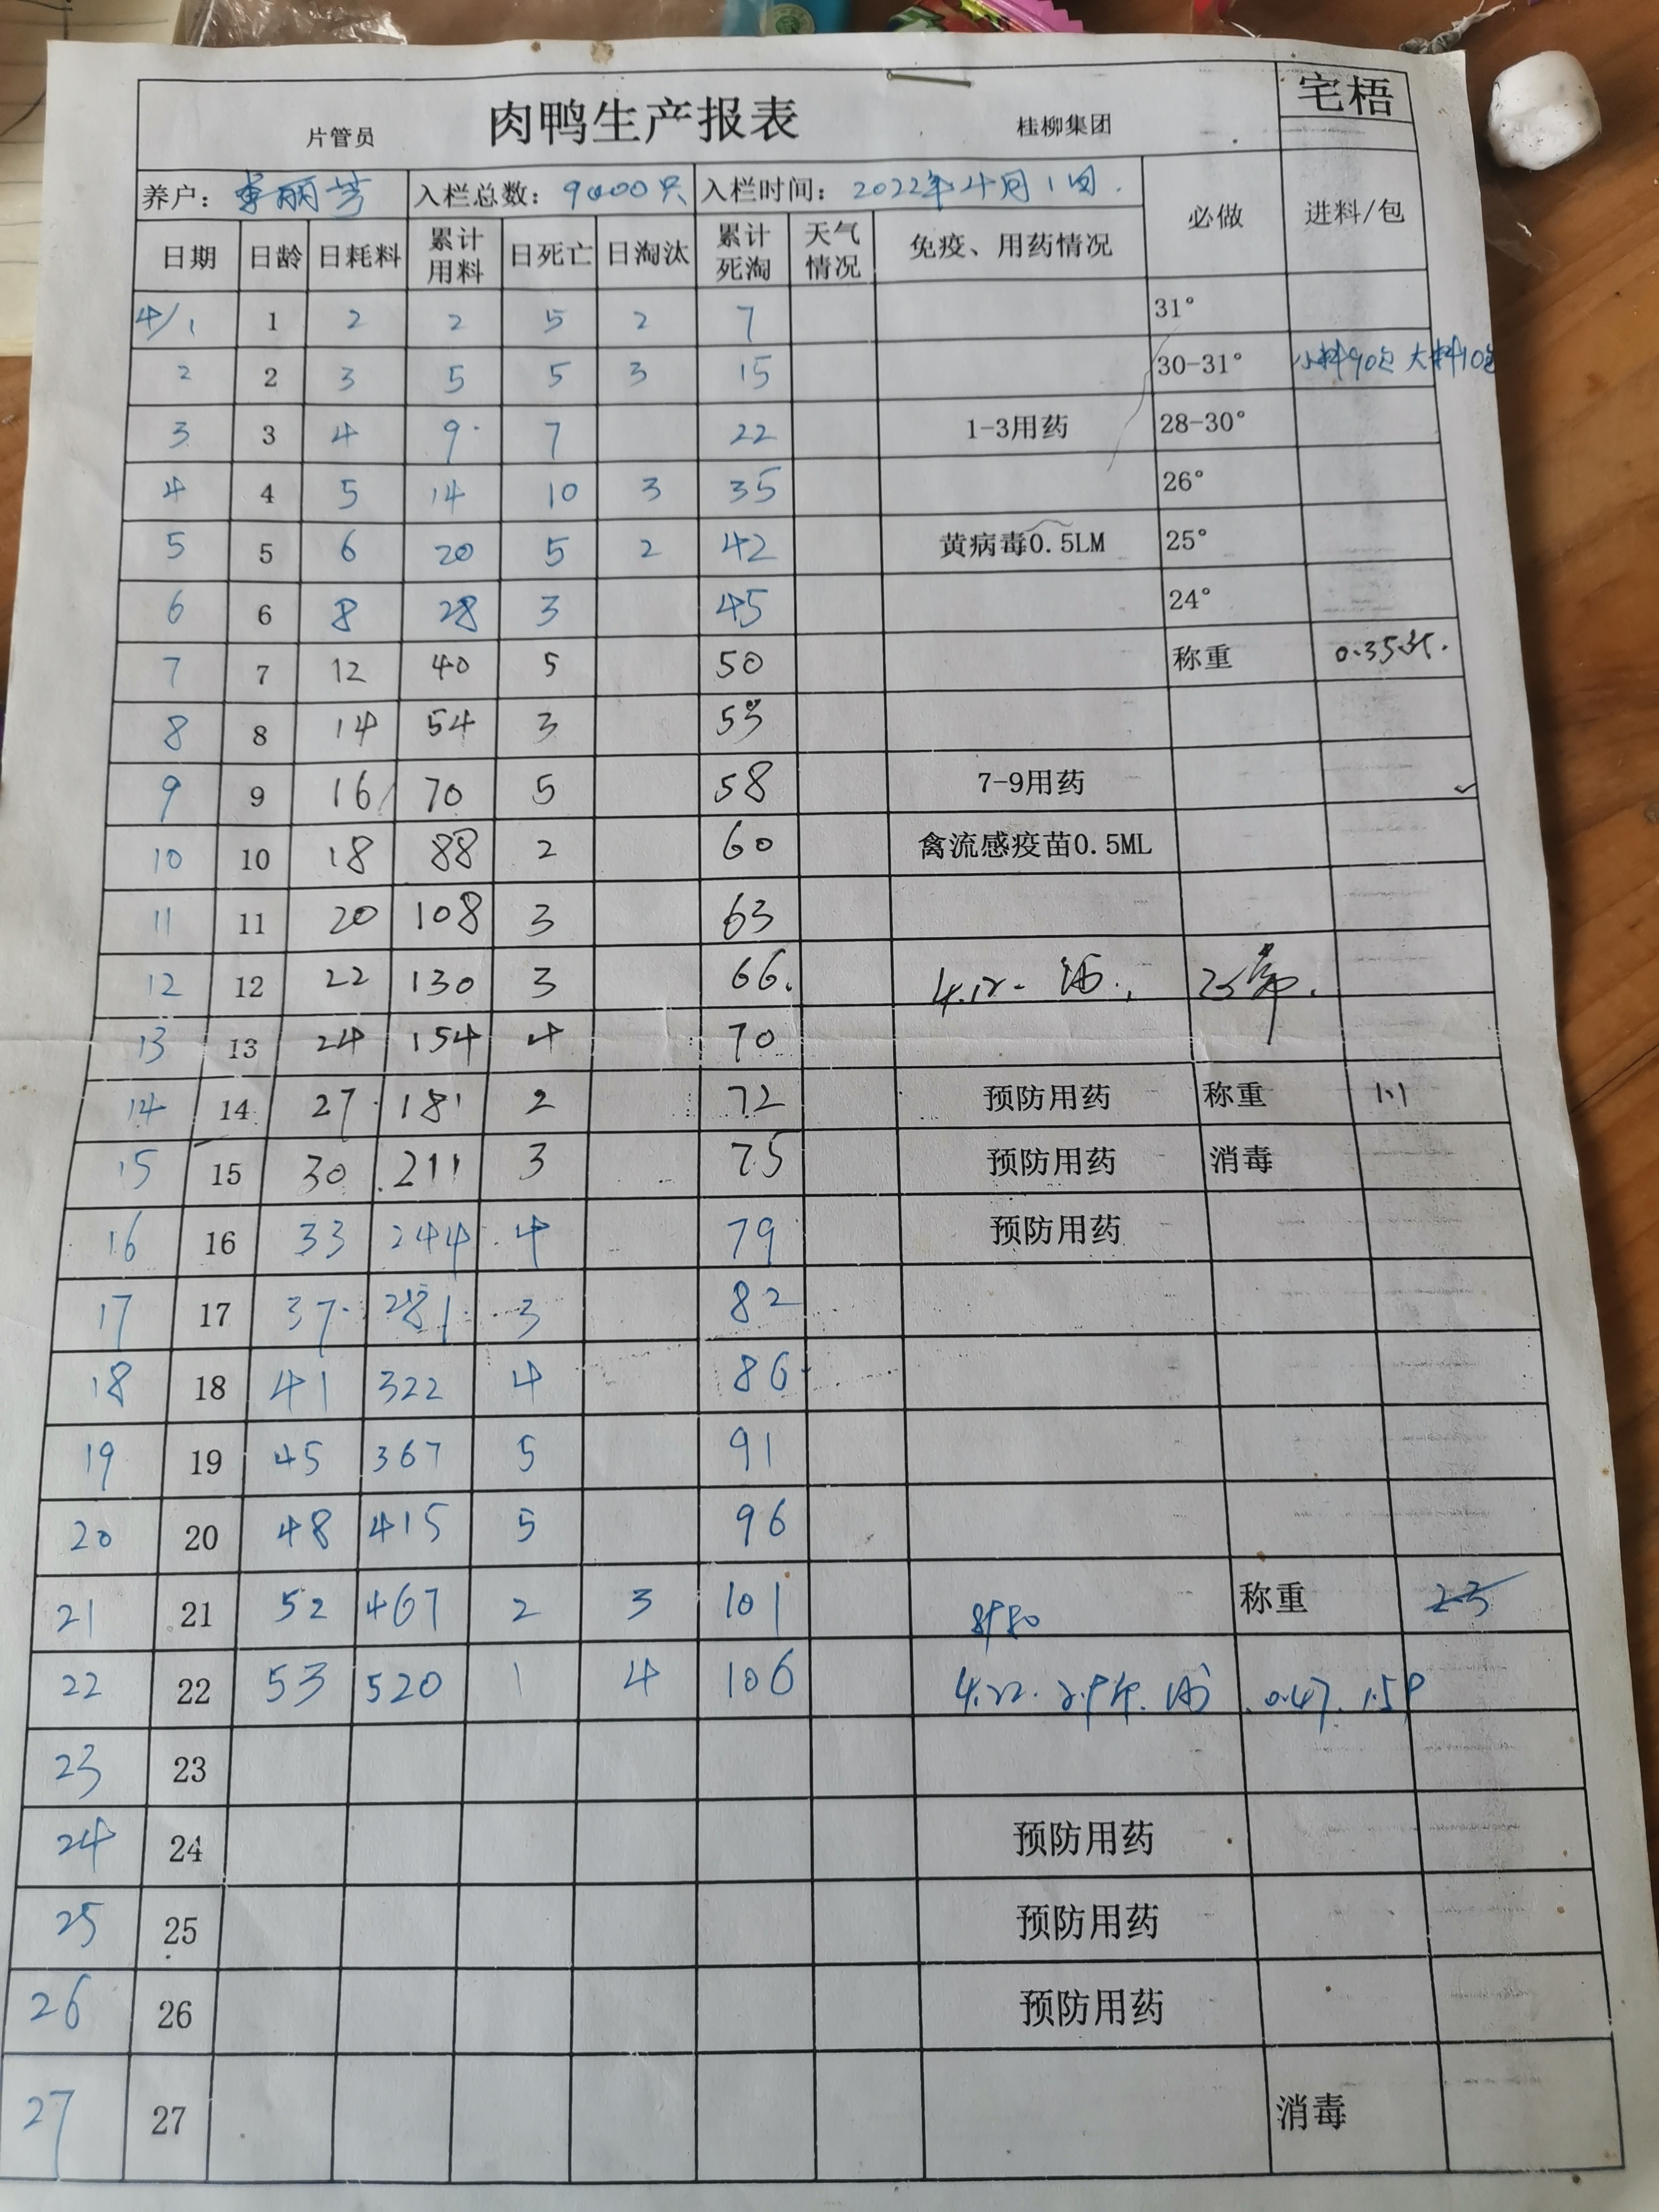 宅梧
片管员 肉鸭生产报表 桂柳集团
养户: 丽芳 入栏总数: 9000只 入栏时间: 2022年4月1日. 必做 进料/包
日期 日龄 日耗料 累计用料 日死亡 日淘汰 累计死淘 天气情况 免疫、用药情况
4/1 1 2 2 5 2 7 31°
2 2 3 5 5 3 15 30-31° 小料90包 大料10包
3 3 4 9 7 22 1-3用药 28-30°
4 4 5 14 10 3 35 26°
5 5 6 20 5 2 42 黄病毒0.5LM 25°
6 6 8 28 3 45 24°
7 7 12 40 5 50 称重 0.35
8 8 14 54 3 53
9 9 16 70 5 58 7-9用药
10 10 18 88 2 60 禽流感疫苗0.5ML
11 11 20 108 3 63
12 12 22 130 3 66. 4.12.
13 13 24 154 4 70
14 14 27 181 2 72 预防用药 称重 1.1
15 15 30 211 3 75 预防用药 消毒
16 16 33 244 4 79 预防用药
17 17 37 281 3 82
18 18 41 322 4 86
19 19 45 367 5 91
20 20 48 415 5 96
21 21 52 467 2 3 101 称重 2.3
22 22 53 520 1 4 106 4.22. 0.47.
23 23
24 24 预防用药
25 25 预防用药
26 26 预防用药
27 27 消毒